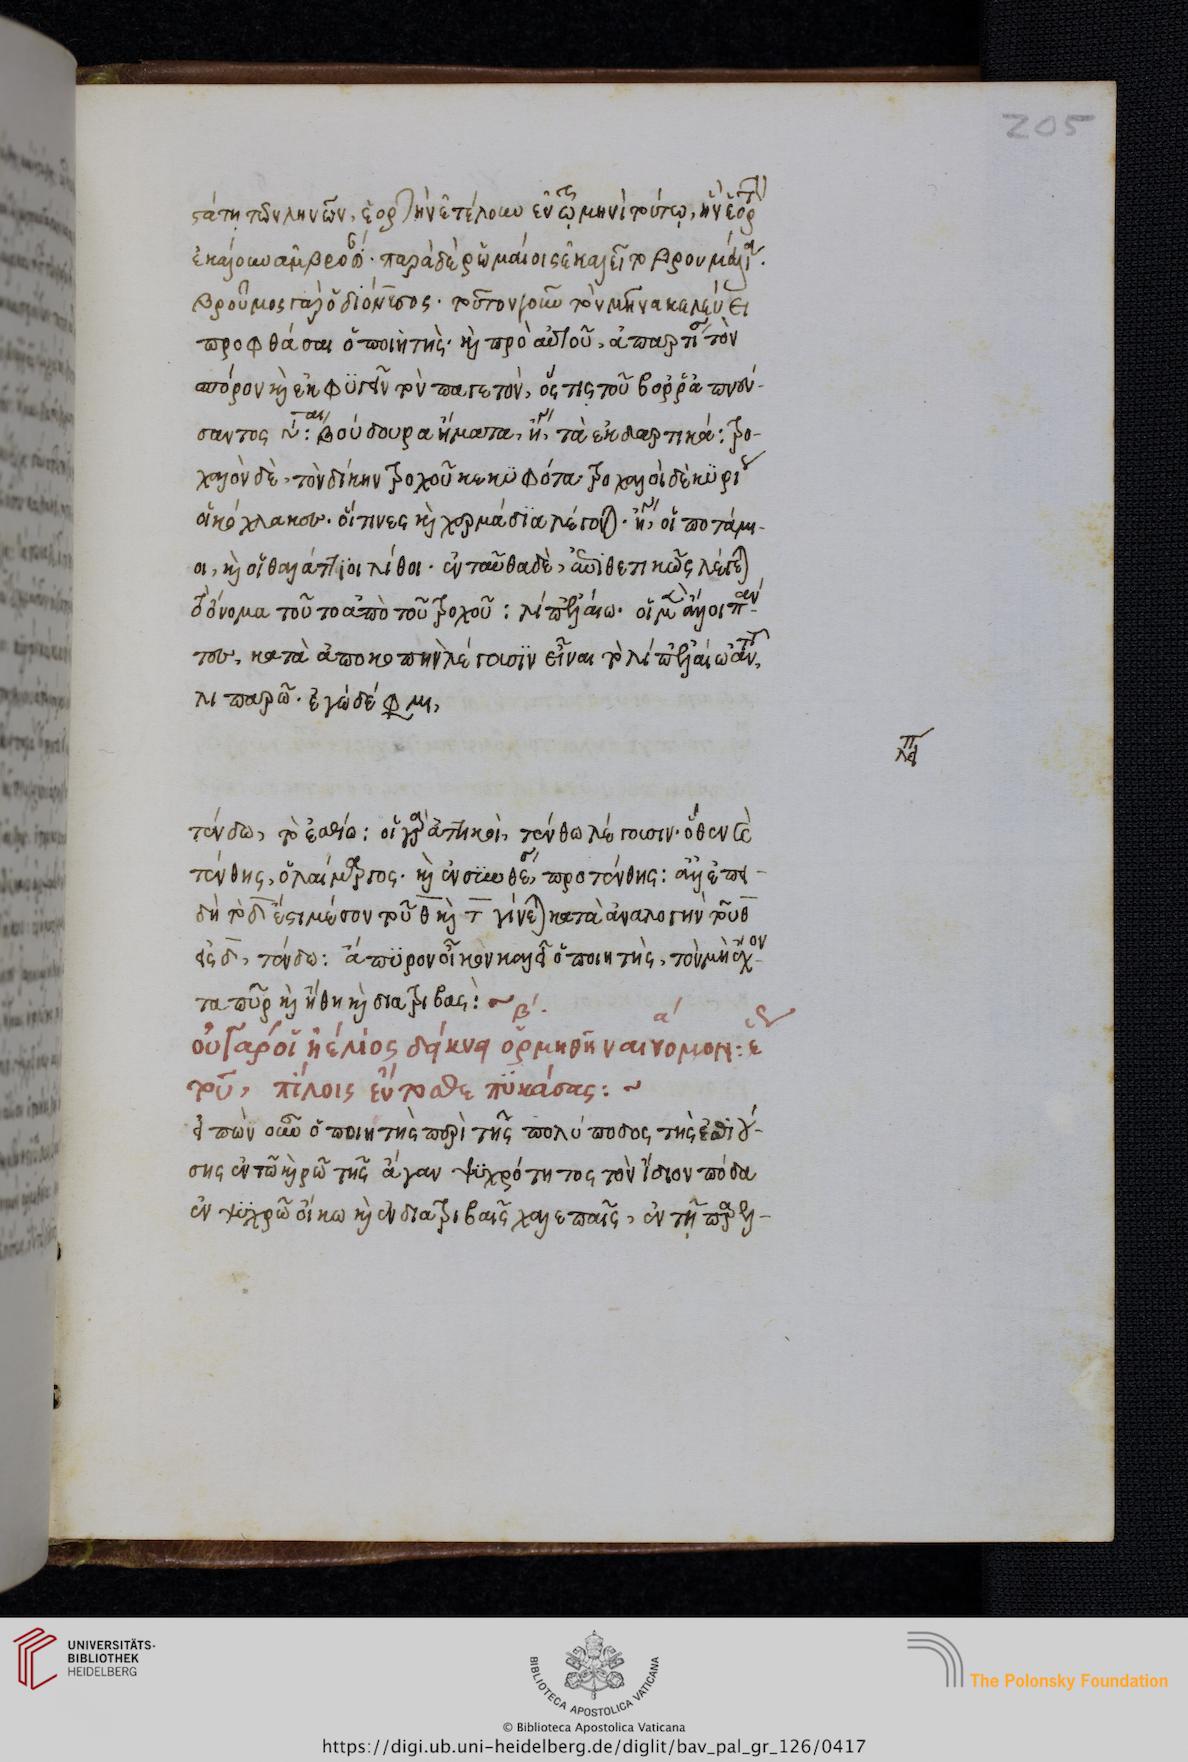 205
στάτη τῶν ληνῶν, ἑορτὴν ἐτέλουν ἐν τῷ μηνὶ τούτῳ, ἣν ἑορτὴν
ἐκάλουν ἀμβροσίαν. παρὰ δὲ ῥωμαίοις ἐκαλεῖτο βρουμάλια.
βροῦμος γὰρ ὁ διόνυσος. τοῦτον οὖν τὸν μῆνα κελεύει
προφθάσαι ὁ ποιητὴς καὶ πρὸ αὐτοῦ, ἀπαρτίσαι τὸν
σπόρον καὶ ἐκφυγεῖν τὸν παγετὸν, ὅστις τοῦ βορρᾶ πνεύ-
σαντος: βούδωρα ἤματα, ἤγουν, τὰ ἐκδαρτικά: τρο-
χαλὸν δὲ, τὸν δίκην τροχοῦ κεκυφότα. τροχαλοὶ δὲ κυρίως
οἱ κόχλακες. οἵτινες καὶ χερμάδια λέγονται. ἤγουν, οἱ ποτάμι-
οι, καὶ οἱ θαλάττιοι λίθοι. ἐνταῦθα δὲ, ἐπιθετικῶς λέγει
ὄνομα τοῦτο ἀπὸ τοῦ τροχοῦ:
λιπαρῶ. ἐγὼ δέ φημι,
τένδω, τὸ ἐσθίω: οἱ γὰρ ἀττικοὶ, τένθω λέγουσιν. ὅθεν καὶ
τένθης, ὁ λαίμαργος. καὶ ἐν συνθέσει, προτένθης: ἀλλ' ἐπει-
δὴ τὸ δ ἐστι μέσον τοῦ θ καὶ τ γίνεται κατὰ ἀναλογίαν τοῦ θ
εἰς δ, τένδω: ἄπυρον οἶκον καλεῖ ὁ ποιητὴς, τὸν μὴ ἔχον-
τα πῦρ καὶ ἤθη καὶ διατριβάς: ~
β΄. α΄
οὐ γάρ οἱ ἠέλιος δείκνυ ὁρμηθῆναι νομόν: ἕως
τοῦ, πίλοις ἔντοσθε πυκάσας: ~
εἰπὼν οὖν ὁ ποιητὴς περὶ τῆς πολύποδος τῆς ἐσθιού-
σης ἐν τῶ καιρῶ τῆς ἄγαν ψυχρότητος τὸν ἴδιον πόδα
ἐν ψυχρῶ οἴκω καὶ ἐν διατριβαῖς χαλεπαῖς, ἐν τῇ παρελ-
UNIVERSITÄTS-
BIBLIOTHEK
HEIDELBERG
BIBLIOTECA APOSTOLICA VATICANA
© Biblioteca Apostolica Vaticana
The Polonsky Foundation
https://digi.ub.uni-heidelberg.de/diglit/bav_pal_gr_126/0417